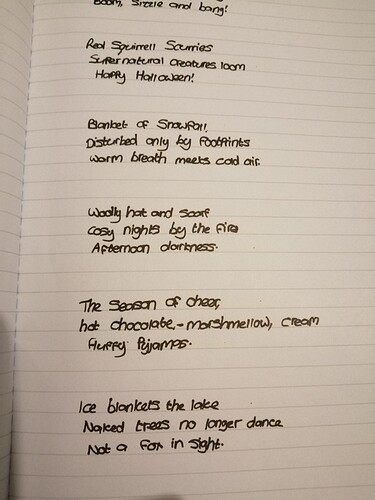 Boom, Sizzle and bang!
Red Squirrell Scurries
Supernatural creatures loom
Happy Halloween!
Blanket of Snowfall,
Disturbed only by footprints
warm breath meets cold air.
Woolly hat and scarf
Cosy nights by the fire
Afternoon darkness.
The Season of cheer,
hot chocolate,-marshmellow, cream
Fluffy Pyjamas.
Ice blankets the lake
Naked trees no longer dance
Not a Fox in sight.